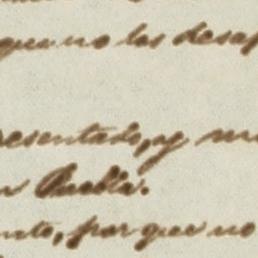 que no los desap
resentado, y mu
n Puebla.
nto, por que no